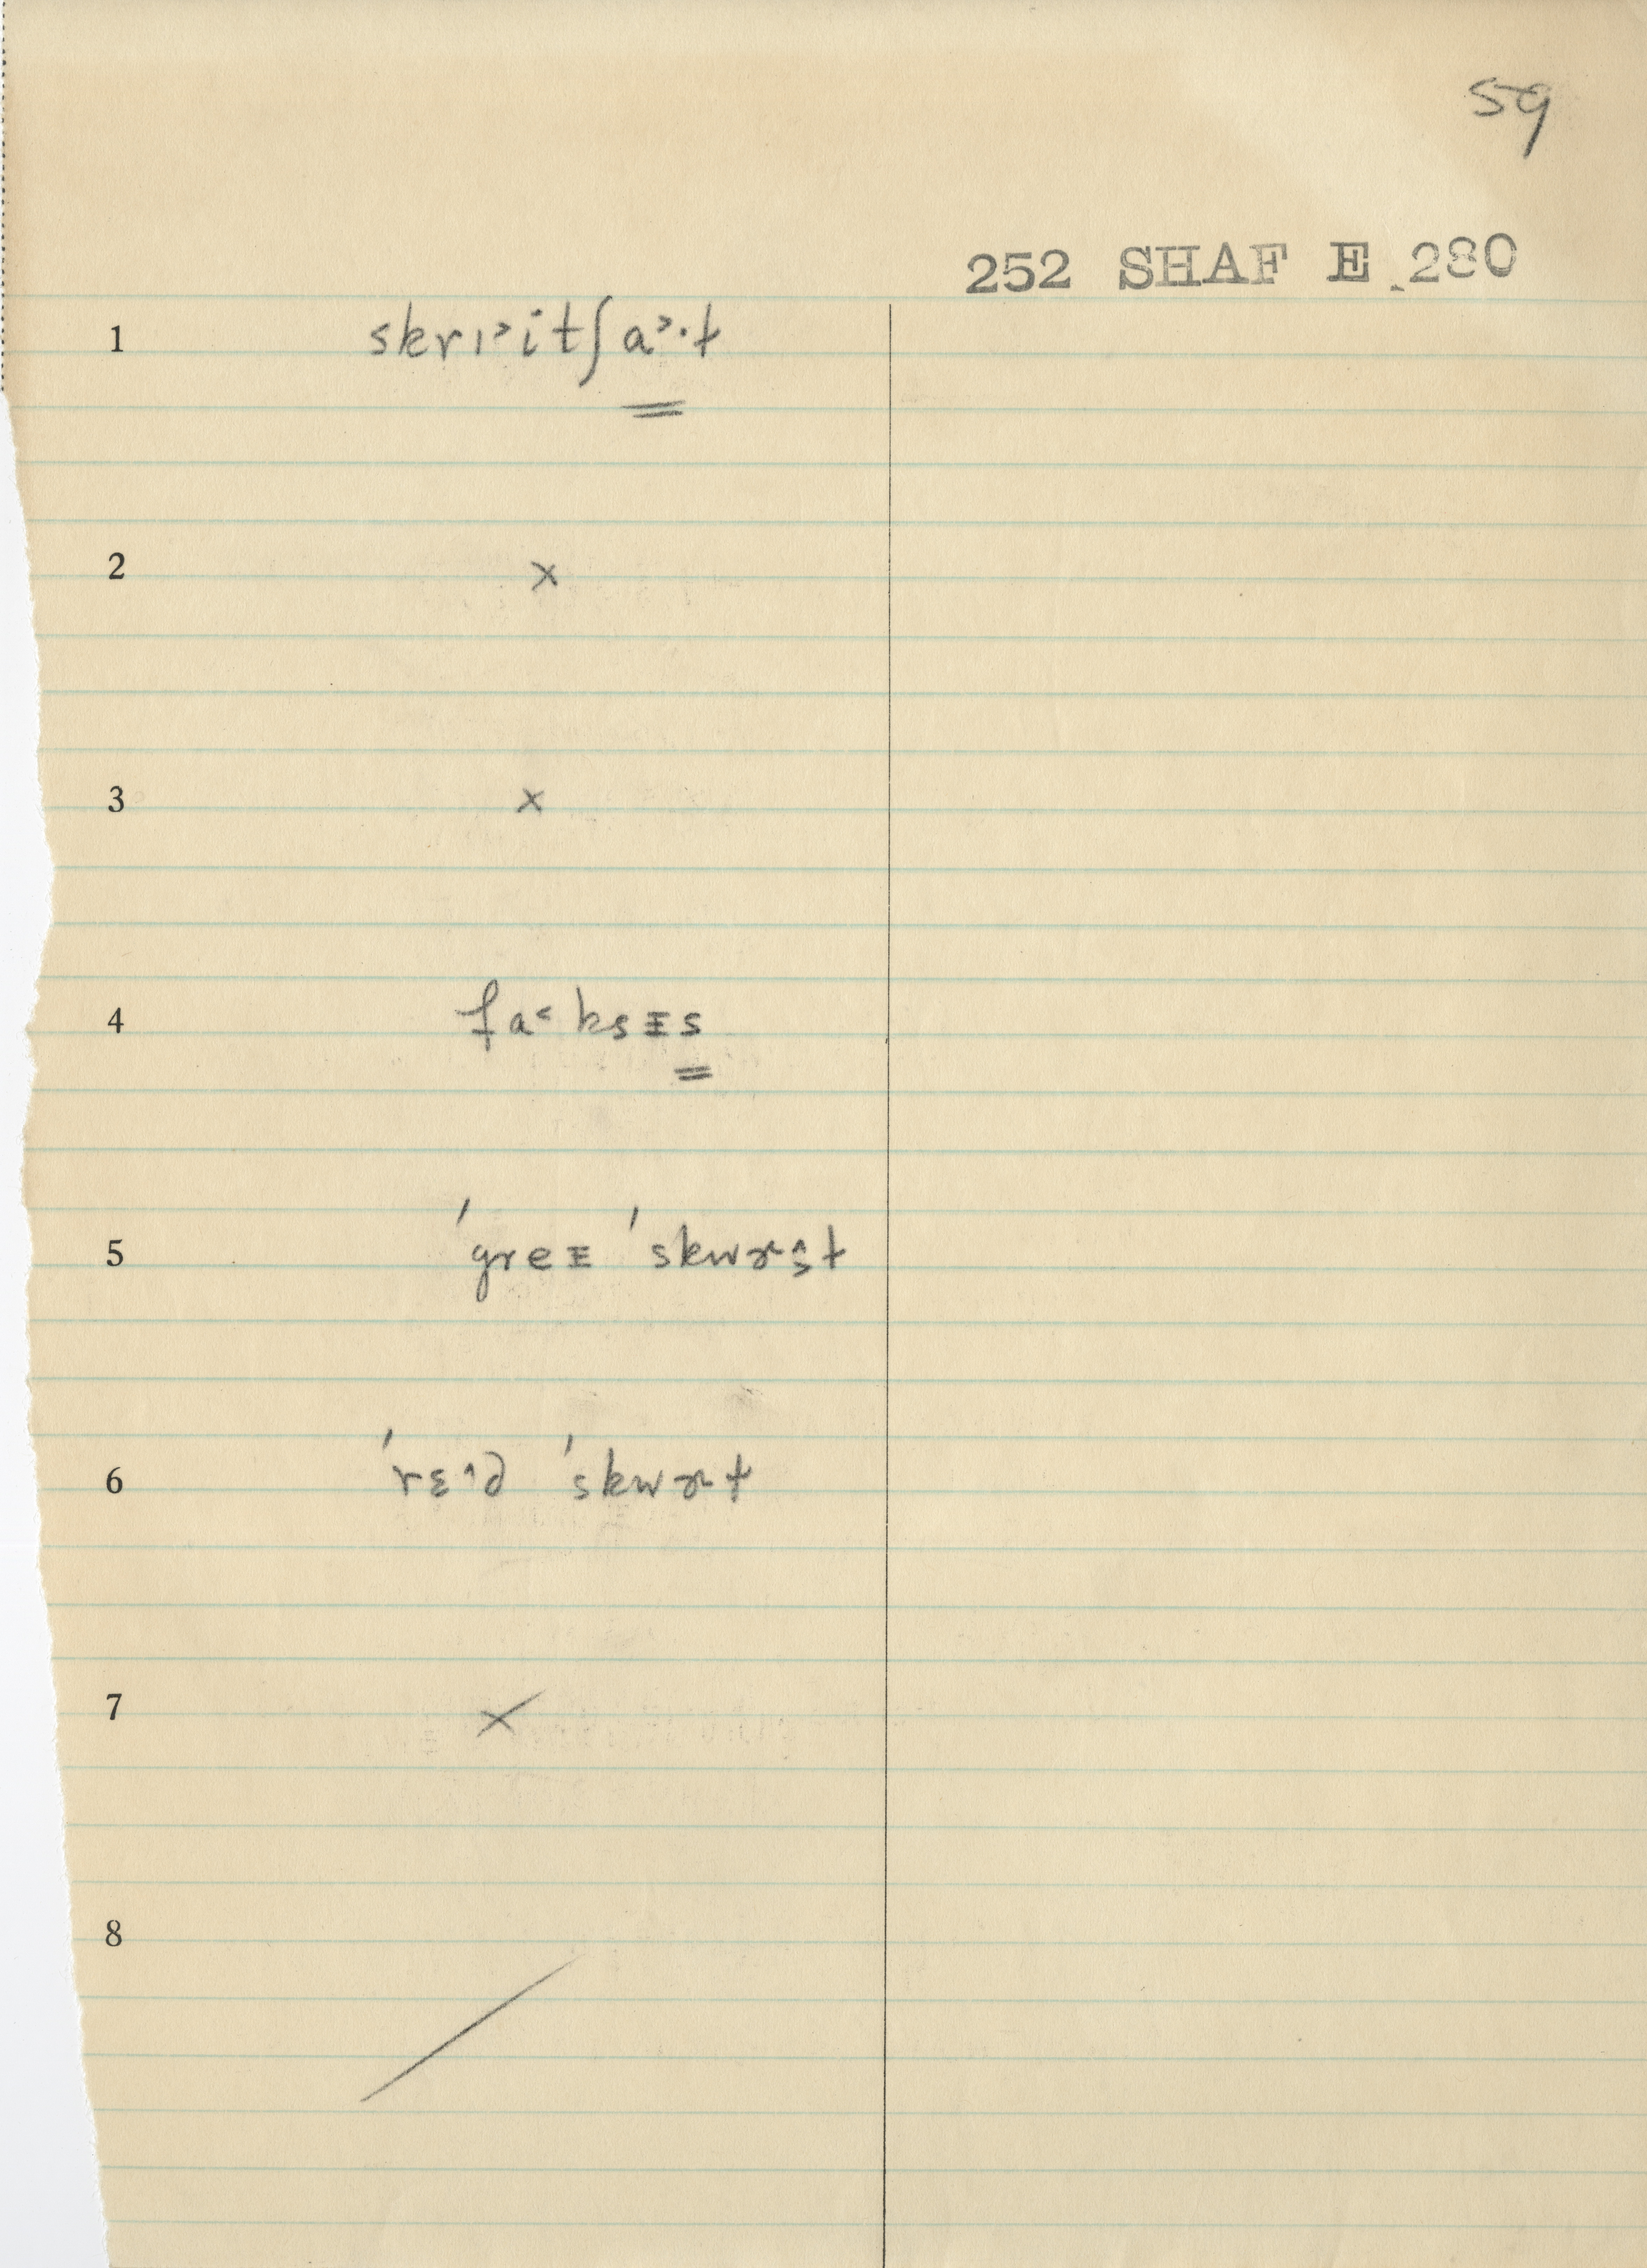 59
252 SHAF E 280
1 skrɪ˃itʃa˃·ɫ
2 x
3 x
4 fa˂ksɪs
5 ˈgreɪ ˈskwɚ̂ɜɫ
6 ˈrɛ˄d ˈskwɚɫ
7 x
8 /